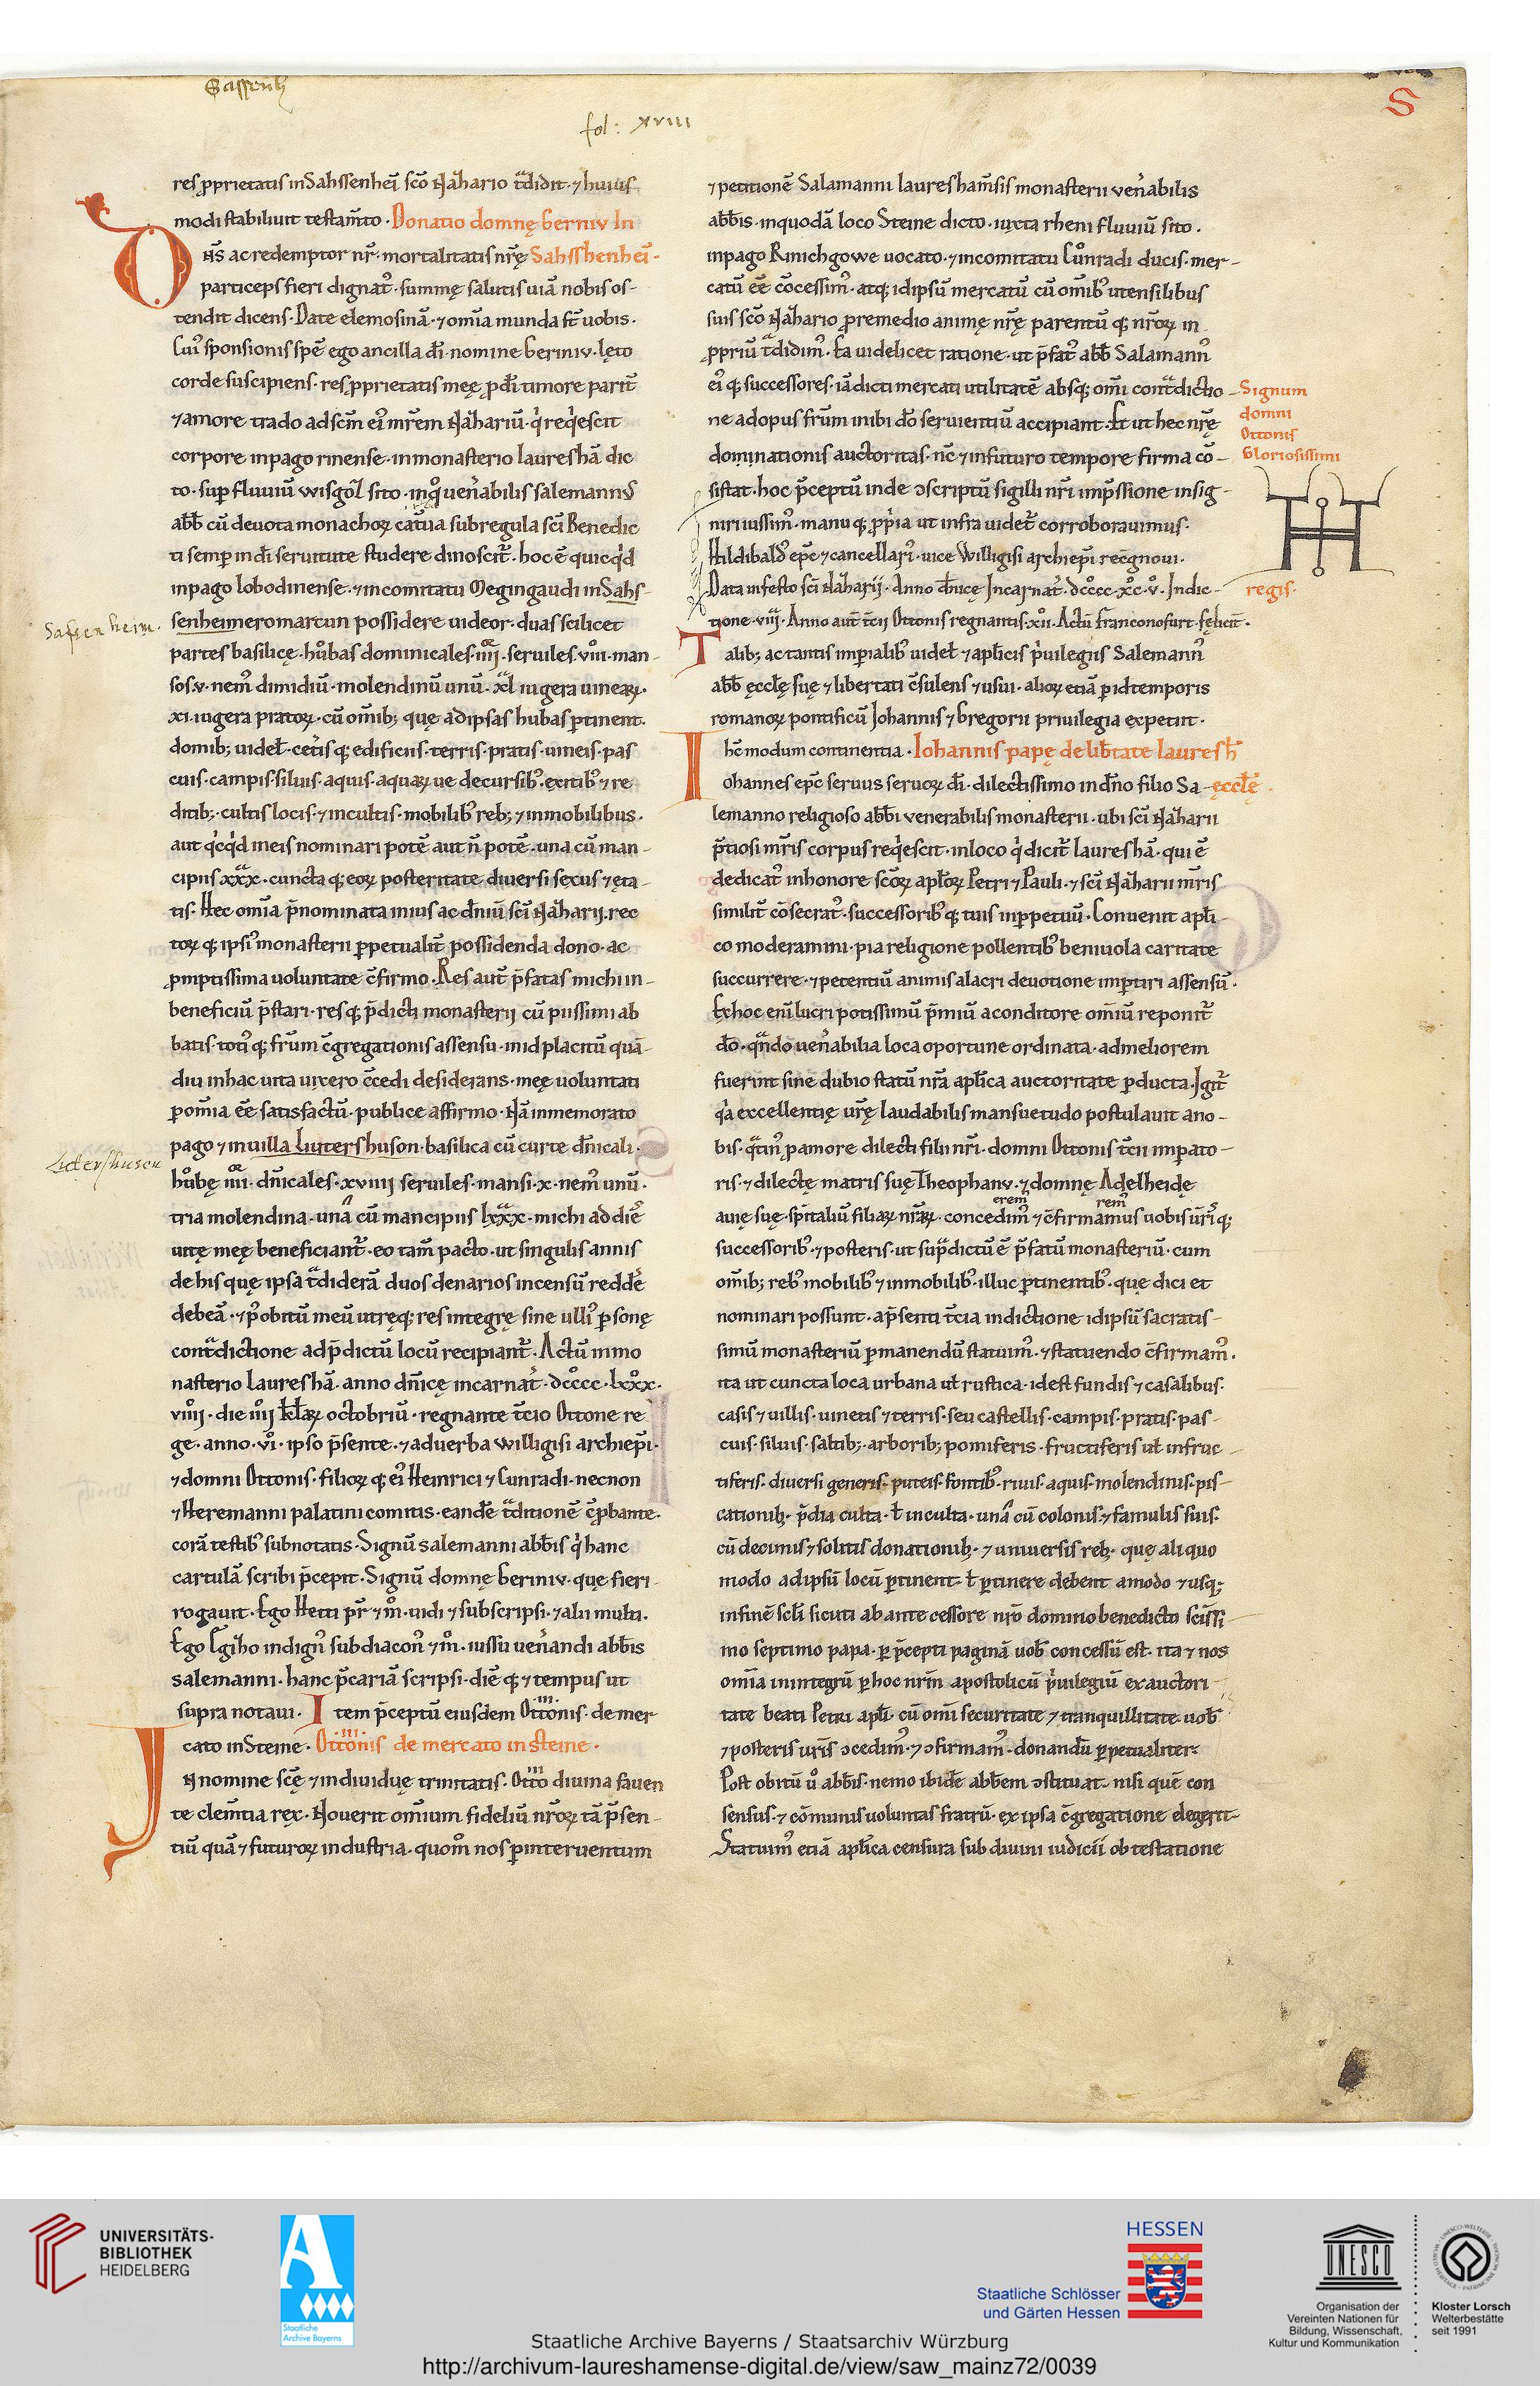 Sassenh
fol: xviii
S
res ꝓprietatis in Sahssenheī scō Nazhario t͛didit ⁊ huius
modi stabiliuit testam̄to · Donatio domnę Beriniv In
Dn̄s ac redemptor nr̄ · mortalitatis nr̄ę Sahsshenheī ·
particeps fieri dignat᷑ · summę salutis uiā nobis os-
tendit dicens · Date elemosinā · ⁊ om̄ia munda st̄ uobis ·
Cuiꝰ sponsionis spē ego ancilla dī · nomine beriniv · lęto
corde suscipiens · res ꝓprietatis meę ꝓ dī timore parit᷑
⁊ amore trado ad sc̄m eiꝰ mr̄em Nazhariū · q̇ reqͥescit
corpore in pago rinense · in monasterio lauresħā dic
to · suꝑ fluuiū wisgoz̄ sito · in qͦ uen̄abilis salemannꝰ
abb̄ cū deuota monachoꝝ cat͛ua sub regula scī Benedic
ti semꝑ in dī seruitute studere dinoscit᷑ · hoc ē quicqͥd
in pago lobodinense · ⁊ in comitatu Megingaudi in Sahs-
Sassenheim · senheimeromarcun possidere uideor · duas scilicet
partes basilicę · hůbas dominicales · iiij · seruiles · viii · man-
sos · v · nemꝰ dimidiū · molendinū unū · xl iugera uineaꝝ ·
xi · iugera pratoꝝ · cū om̄ib; quę ad ipsas hubas ꝑtinent ·
domib; uidel̄ · cet̄is q; edificiis · terris · pratis · uineis · pas
cuis · campis · siluis · aquis · aquaꝝ ue decursibꝰ · exitibꝰ ⁊ re
ditib; · cultis locis · ⁊ incultis · mobilibꝰ reb; ⁊ inmobilibus ·
aut qͥcqͥd in eis nominari potē aut n̄ potē · una cū man-
cipiis xxx · cuncta q; eoꝝ posteritate diuersi sexus ⁊ ęta-
tis · Hec om̄ia p̄nominata in ius ac dn̄iū scī Nazharii · rec
toꝝ q; ipsiꝰ monasterii ꝑpetualit᷑ possidenda dono · ac
ꝓmptissima uoluntate c̄firmo · Res aut̄ p̄fatas michi in-
beneficiū p̄stari · res q; p̄dicti monasterij cū piissimi ab
batis · totiꝰ q; fr̄um c̄gregationis assensu · in id placitū quā-
diu in hac uita uixero c̄cedi desiderans · meę uoluntati
ꝑ om̄ia eē satisfactū · publice affirmo · Nā in memorato
Liutershusen pago ⁊ in uilla Liutershuson · basilica cū curte dn̄icali ·
hůbę iiii · dn̄icales · xviiij seruiles · mansi · x · nemꝰ unū ·
tria molendina · una cū mancipiis lxxx · michi ad diē
uitę meę beneficiant᷑ · eo tam̄ pacto · ut singulis annis
de his quę ipsa t͛diderā duos denarios in censū redd̄e
debeā · ⁊ pꝰ obitū meū utręq; res integrę sine ulliꝰ ꝑsonę
cont͛dictione ad p̄dictū locū recipiant᷑ · Actū in mo
nasterio lauresħā · anno dn̄icę incarnat̄ · dcccc · lxxx ·
viiij · die iiij kl̄aꝝ octobriū · regnante t̄cio Ottone re
ge · anno · vi · ipso p̄sente · ⁊ ad uerba willigisi archiep̄i ·
⁊ domni Ottonis · filioꝝ q; eiꝰ Heinrici ⁊ Cunradi · necnon
⁊ Heremanni palatini comitis · eandē t͛ditionē c̄ꝓbante ·
corā testibꝰ subnotatis · Signū salemanni abb̄is qͥ hanc
cartulā scribi p̄cepit · Signū domnę beriniv · que fieri
rogauit · Ego Hetti pr̄ ⁊ m̊ · uidi ⁊ subscripsi · ⁊ alii multi ·
Ego indignꝰ subdiaconꝰ ⁊ m̊ · iussu uen̄andi abb̄is
salemanni · hanc p̄cariā scripsi · diē q; ⁊ tempus ut
supra notaui · Item p̄ceptū eiusdem Ottonis · de mer
cato in Steine · Ottonis de mercato in steine ·
In nomine scę̄ ⁊ indiuiduę trinitatis · Otto diuina fauen
te clem̄tia rex · Nouerit om̄ium fideliū nr̄oꝝ tā p̄sen-
tiū quā ⁊ futuroꝝ industria · quom̊ nos ꝑ interuentum
⁊ petitionē Salamanni lauresham̄sis monasterii ven̄abilis
abb̄is · in quodā loco Steine dicto · iuxta rheni fluuiū sito ·
in pago Rinichgowe uocato · ⁊ in comitatu Cůnradi ducis · mer-
catū eē c̄ocessimꝰ · atq; id ipsū mercatū cū om̄ibꝰ utensilibus
suis scō Nazhario ꝓ remedio animę nr̄ę parentū q; nr̄oꝝ in
ꝓpriū t͛didimꝰ · Ea uidelicet ratione · ut p̄fatꝰ abb̄ Salamannꝰ
eiꝰ q; successores · iā dicti mercati utilitatē absq; om̄i cont͛dictio-
ne ad opus fr̄um inibi dō seruientiū accipiant · Et ut hec nr̄ę
dominationis auctoritas · nc̄ ⁊ in futuro tempore firma cō-
sistat · hoc p̄ceptū inde ↄscriptū sigilli nr̄i imp̄ssione insig-
niri iussimꝰ · manu q; ꝓp̄ia ut infra uidet᷑ corroborauimus ·
Hildibaldꝰ epc̄ ⁊ cancellariꝰ · uice Willigisi archiep̄i recognoui ·
Data in festo scī Nazharij · Anno dn̄icę Incarnat̄ · dcccc · xc · v · Indic-
tione · viij · Anno aut̄ t̄cii Ottonis regnantis · xii · Actū franconofurt · fęlicit᷑ ·
Signum
domni
Ottonis
Gloriosissimi
regis ·
Talib; ac tantis imꝑialibꝰ uidel̄ ⁊ apl̄icis pͥuilegiis Salemannꝰ
abb̄ ęccl̄ę suę ⁊ libertati c̄sulens ⁊ usui · alioꝝ etiā ꝑ id temporis
romanoꝝ pontificū Johannis ⁊ Gregorii priuilegia expetiit ·
hc̄ modum continentia · Iohannis papę de lib̄tate lauresħ
ęccl̄ę ·
Iohannes epc̄ seruus seruoꝝ dī · dilectissimo in dn̄o filio Sa-
lemanno religioso abb̄i venerabilis monasterii · ubi scī Nazharii
p̄tiosi mr̄is corpus reqͥescit · in loco qͥ dicit᷑ lauresħā · qui ē
dedicatꝰ in honore scōꝝ apl̄oꝝ Petri ⁊ Pauli · ⁊ scī Nazharii mr̄is
similit᷑ cōsecratꝰ · successoribꝰ q; tuis in ꝑpetuū · Conuenit apl̄i-
co moderamini · pia religione pollentibꝰ beniuola caritate
succurrere · ⁊ petentiū animis alacri deuotione imꝑtiri assensū ·
Ex hoc enī lucri potissimū p̄miū a conditore om̄iū reponit᷑
dō · qn̄do uen̄abilia loca oportune ordinata · ad meliorem
fuerint sine dubio statū nr̄a apl̄ica auctoritate ꝑducta · Igit᷑
qͣ excellentię ur̄ę laudabilis mansuetudo postulauit a no-
bis · qͣtinꝰ ꝓ amore dilecti filii nr̄i · domni Ottonis t̄cii imꝑato-
ris · ⁊ dilectę matris suę Theophanv · ⁊ domnę Adelheidę
auię suę · sp̄italiū filiaꝝ nr̄aꝝ · concedimꝰ erem ⁊ c̄firmamus remꝰ uobis ur̄iꝰ q;
successoribꝰ · ⁊ posteris · ut sup͛dictū ē p̄fatū monasteriū · cum
om̄ib; rebꝰ mobilibꝰ ⁊ inmobilibꝰ · illuc ꝑtinentibꝰ · quę dici et
nominari possunt · a p̄senti t̄cia indictione id ipsū sacratis-
simū monasteriū ꝑmanendū statuimꝰ · ⁊ statuendo c̄firmamꝰ ·
ita ut cuncta loca urbana ul̄ rustica · id est fundis ⁊ casalibus ·
casis ⁊ uillis · uinetis ⁊ terris · seu castellis · campis · pratis · pas-
cuis · siluis · saltib; · arborib; pomiferis · fructiferis ul̄ infruc-
tiferis · diuersi generis · puteis · fontibꝰ · riuis · aquis · molendinis · pis-
cationib; · p̄dia culta · ł inculta · una cū colonis · ⁊ famulis suis ·
cū decimis ⁊ solitis donationib; · ⁊ uniuersis reb; · quę aliquo
modo ad ipsū locū ꝑtinent · ł ꝑtinere debent a modo ⁊ usq;
in finē scl̄i sicuti ab ante cessore nr̄o domino benedicto sc̄issi-
mo septimo papa · ꝑ p̄cepti paginā uob̄ concessū est · ita ⁊ nos
om̄ia in integrū ꝑ hoc nr̄m apostolicū pͥuilegiū ex auctori-
tate beati Petri apl̄i · cū om̄i securitate ⁊ tranquillitate uob̄
⁊ posteris ur̄is ↄcedimꝰ · ⁊ ↄfirmamꝰ · donandū ꝑpetualiter ·
Post obitū ů abb̄is · nemo ibidē abb̄em ↄstituat · nisi quē con
sensus · ⁊ cōmunis uoluntas fratrū · ex ipsa c̄gregatione elegerit
Statuimꝰ etiā apl̄ica censura sub diuini iudicii obtestatione
UNIVERSITÄTS-
BIBLIOTHEK
HEIDELBERG
Staatliche
Archive Bayerns
HESSEN
Staatliche Schlösser
und Gärten Hessen
UNESCO
Organisation der
Vereinten Nationen für
Bildung, Wissenschaft,
Kultur und Kommunikation
Kloster Lorsch
Welterbestätte
seit 1991
Staatliche Archive Bayerns / Staatsarchiv Würzburg
http://archivum-laureshamense-digital.de/view/saw_mainz72/0039